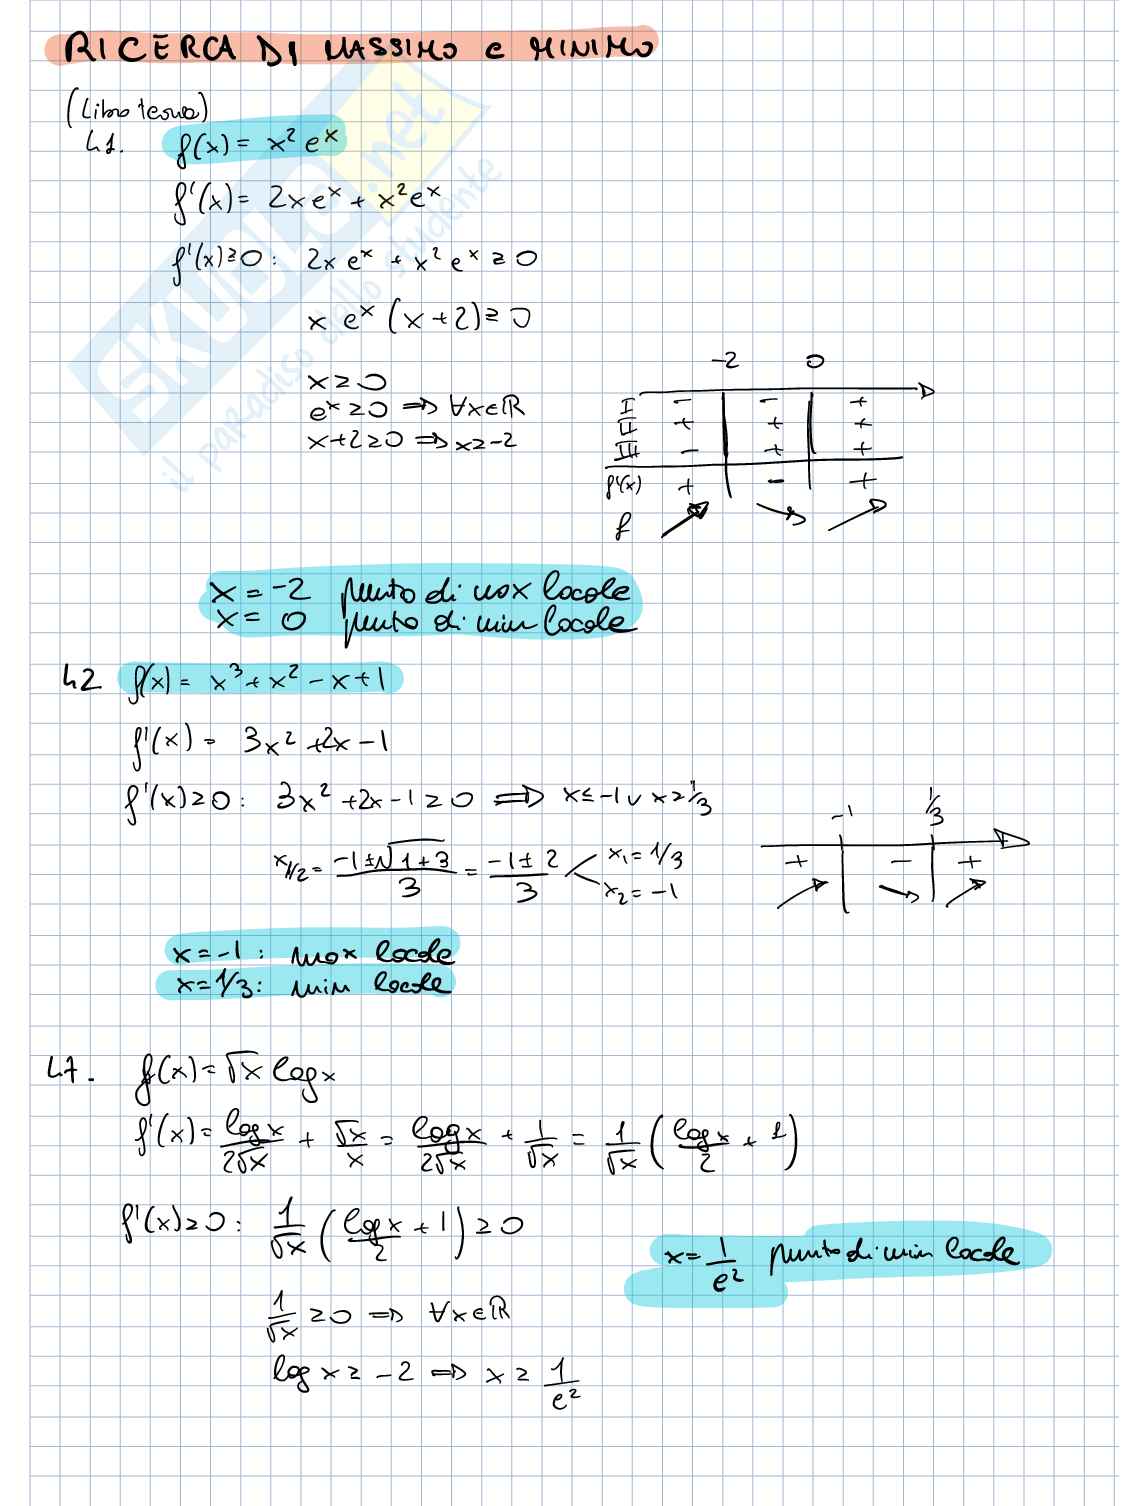 RICERCA DI MASSIMO e MINIMO
(Libro teoria)
41. f(x) = x² eˣ
f'(x) = 2x eˣ + x² eˣ
f'(x) ≥ 0 : 2x eˣ + x² eˣ ≥ 0
x eˣ (x + 2) ≥ 0
x ≥ 0
eˣ ≥ 0 ⇒ ∀x∈ℝ
x + 2 ≥ 0 ⇒ x ≥ -2
-2 0
I - - +
II + + +
III - + +
f'(x) + - +
f
x = -2 punto di max locale
x = 0 punto di min locale
42 f(x) = x³ + x² - x + 1
f'(x) = 3x² + 2x - 1
f'(x) ≥ 0 : 3x² + 2x - 1 ≥ 0 ⇒ x ≤ -1 ∨ x ≥ 1/3
x1/2 = (-1 ± √(1+3))/3 = (-1 ± 2)/3 x₁ = 1/3
x₂ = -1
-1 1/3
+ - +
x = -1 : max locale
x = 1/3 : min locale
47. f(x) = √x log x
f'(x) = log x/2√x + √x/x = log x/2√x + 1/√x = 1/√x (log x/2 + 1)
f'(x) ≥ 0 : 1/√x (log x/2 + 1) ≥ 0
x = 1/e² punto di min locale
1/√x ≥ 0 ⇒ ∀x∈ℝ
log x ≥ -2 ⇒ x ≥ 1/e²
SKUOLA.net
il paradiso dello studente